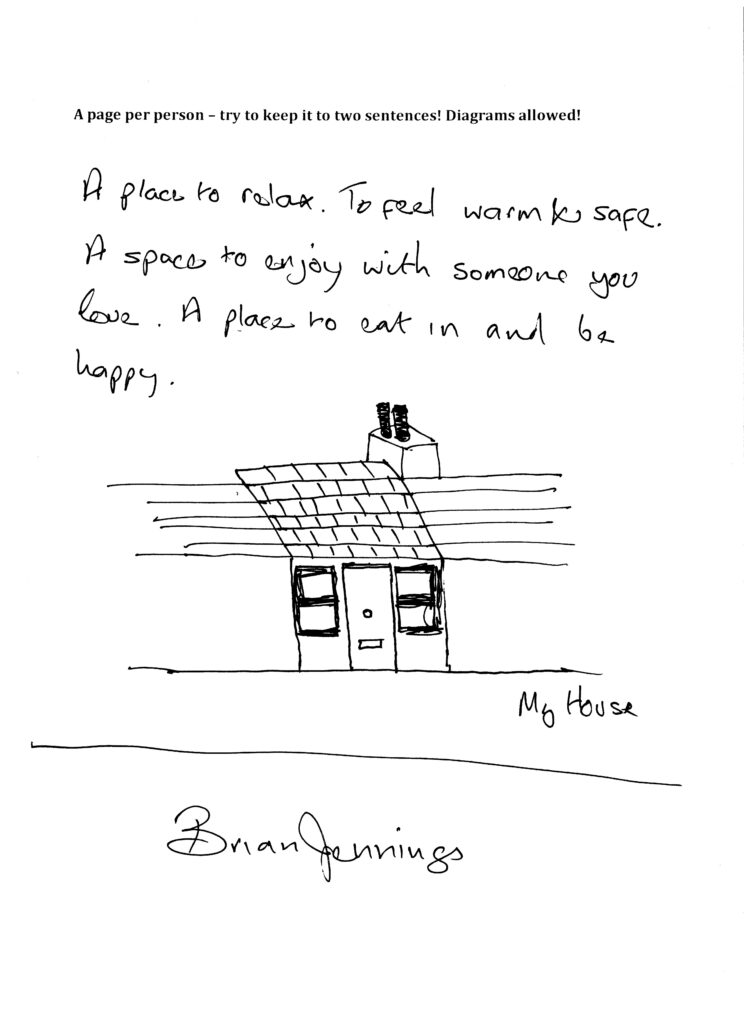 A page per person – try to keep it to two sentences! Diagrams allowed!
A place to relax. To feel warm & safe.
A space to enjoy with someone you
love. A place to eat in and be
happy.
My House
Brian Jennings